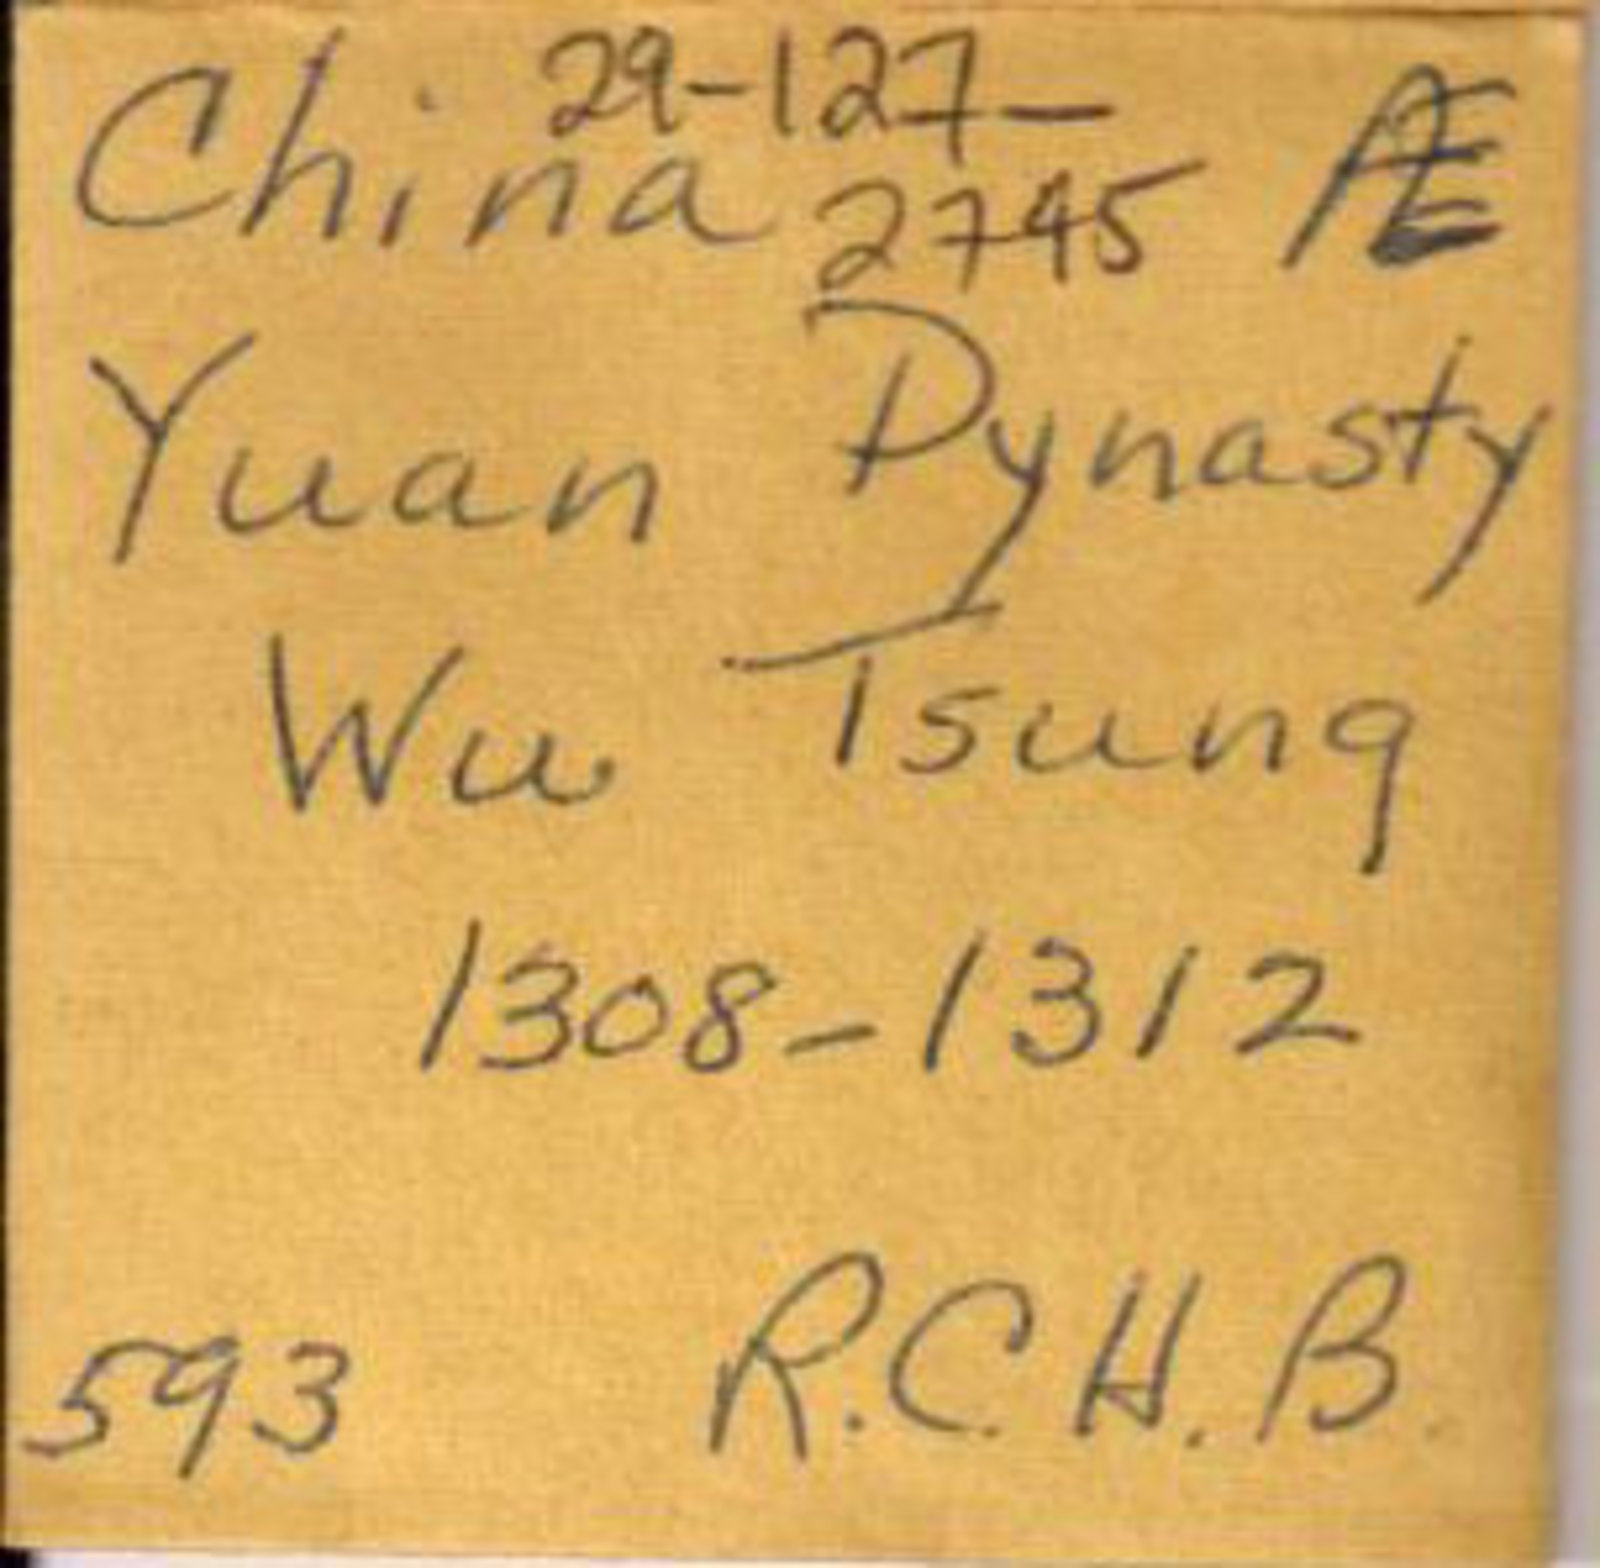 China 29-127-2745 Æ
Yuan Dynasty
Wu Tsung
1308-1312
593 R.C.H.B.